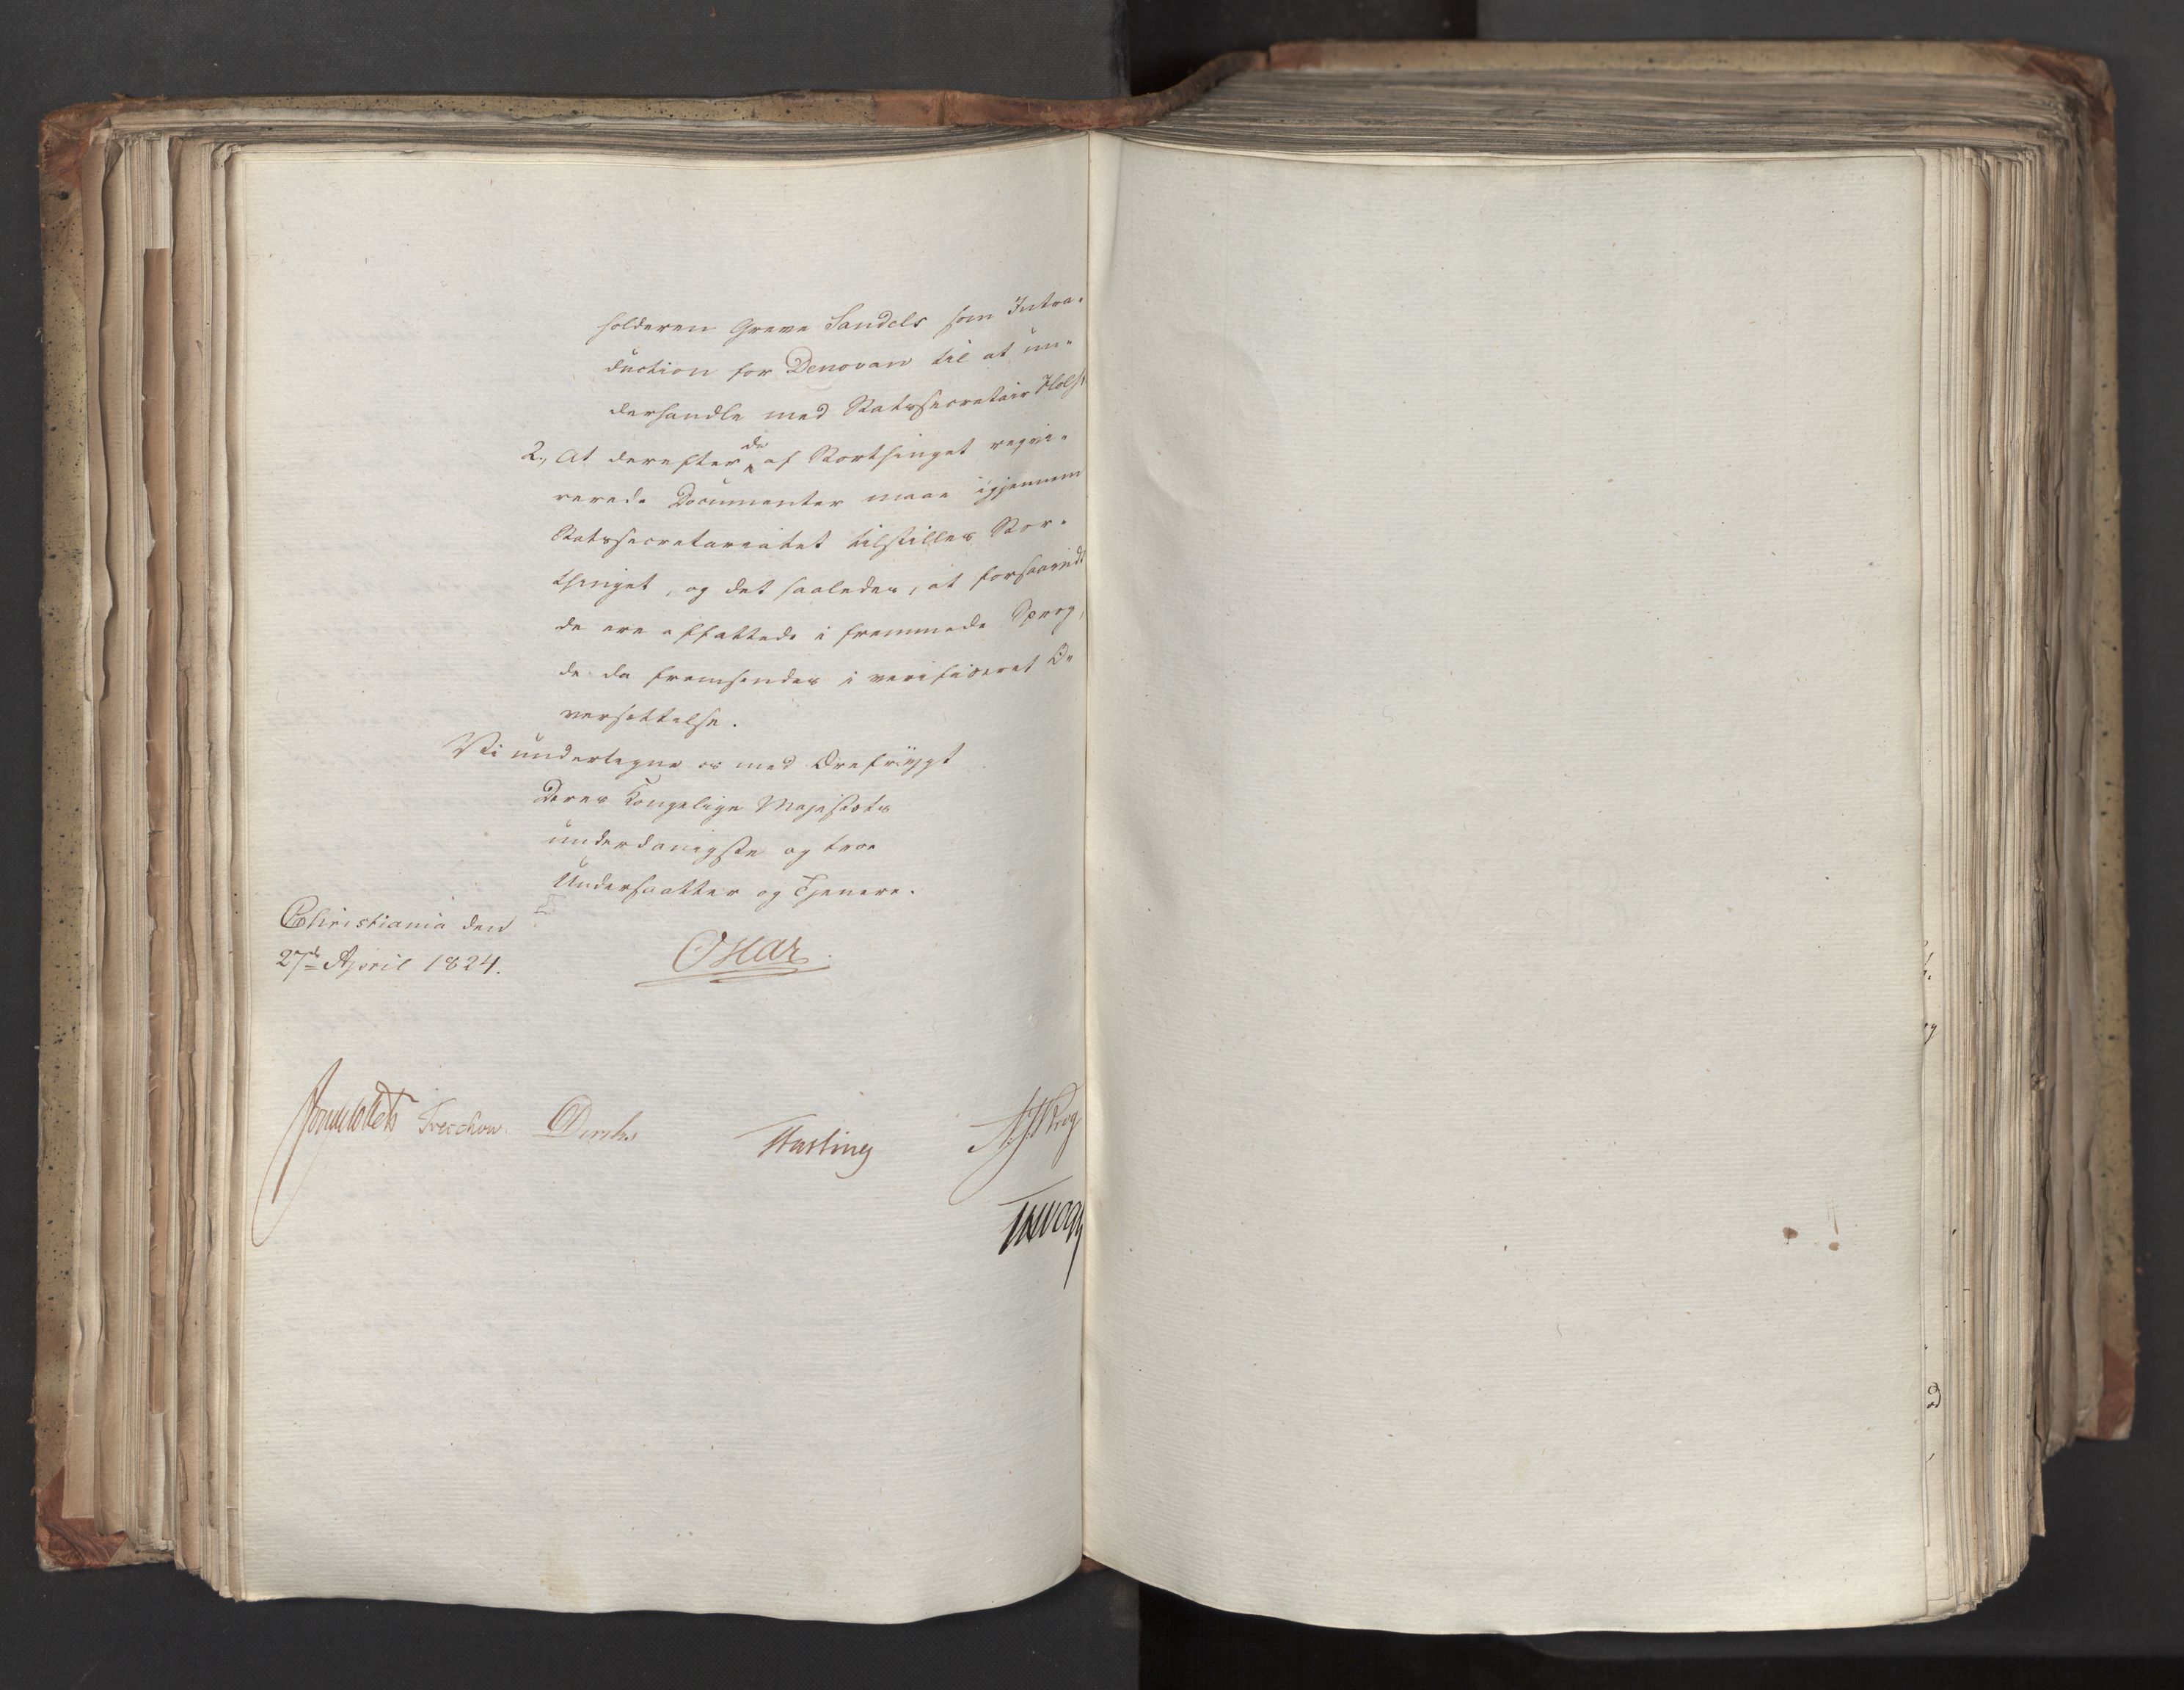 holderen Greve Sandels som Intro-
duction for Denovan til at un-
derhandle med Statssecretair Holst
2, At derefter de af Storthinget reqvi-
rerede Documenter maae igjennem
Statssecretariatet tilstilles Stor-
thinget, og det saaledes, at forsaavidt
de ere affattede i fremmede Sprog,
de da fremsendes i verificeret O-
versættelse.
Vi undertegne os med Ærefrygt
Deres Kongelige Majestæts
underdanigste og troe
Undersaatter og Tjenere.
Christiania den
27de April 1824.
Oscar
Sommerhielm Treschow Diriks Fasting A. J. Krog